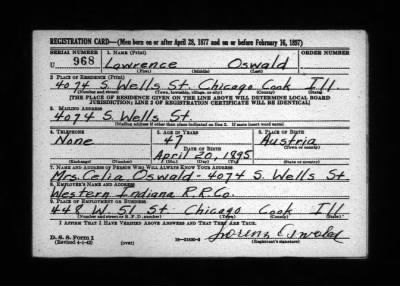 REGISTRATION CARD—(Men born on or after April 28, 1877 and on or before February 16, 1897)
SERIAL NUMBER 1. NAME (Print) ORDER NUMBER
U 968 Lawrence Oswald
(First) (Middle) (Last)
2. PLACE OF RESIDENCE (Print)
4074 S. Wells St. Chicago Cook Ill.
(Number and street) (Town, township, village, or city) (County) (State)
[THE PLACE OF RESIDENCE GIVEN ON THE LINE ABOVE WILL DETERMINE LOCAL BOARD
JURISDICTION; LINE 2 OF REGISTRATION CERTIFICATE WILL BE IDENTICAL]
3. MAILING ADDRESS
4074 S. Wells St.
(Mailing address if other than place indicated on line 2. If same insert word same)
4. TELEPHONE 5. AGE IN YEARS 6. PLACE OF BIRTH
None 47 Austria
DATE OF BIRTH (Town or county)
April 20, 1895
(Exchange) (Number) (Mo.) (Day) (Yr.) (State or country)
7. NAME AND ADDRESS OF PERSON WHO WILL ALWAYS KNOW YOUR ADDRESS
Mrs. Celia Oswald - 4074 S. Wells St.
8. EMPLOYER'S NAME AND ADDRESS
Western Indiana R.R. Co.
9. PLACE OF EMPLOYMENT OR BUSINESS
448 W. 51 St. Chicago Cook Ill.
(Number and street or R. F. D. number) (Town) (County) (State)
I AFFIRM THAT I HAVE VERIFIED ABOVE ANSWERS AND THAT THEY ARE TRUE.
D. S. S. Form 1
(Revised 4-1-42) (over) Oswald
(Registrant's signature)